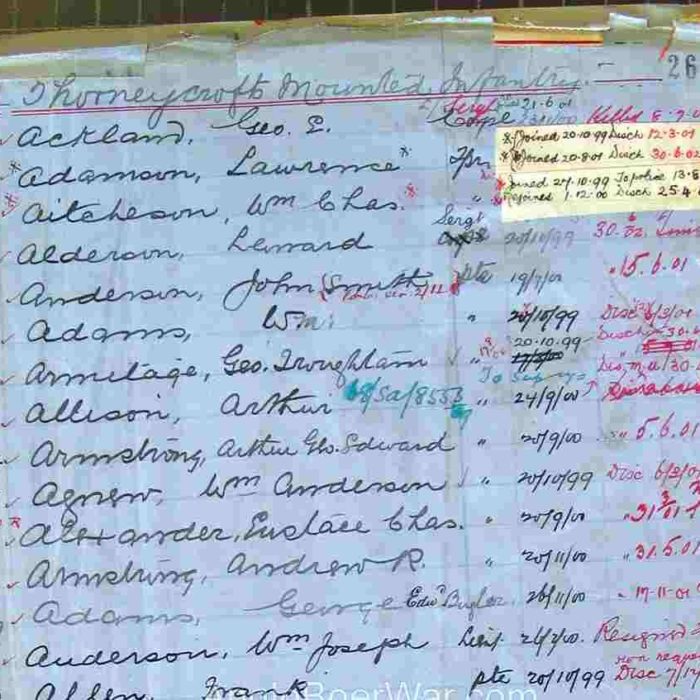 26
Thorneycroft Mounted Infantry.
21.6.01
Ackland, Geo. P. Corpl Killed
Joined 20.10.99 Disch 12.3.01
Joined 20.8.01 Disch 30.6.02
Joined 27.10.99 To police 13.8
Rejoined 1.12.00 Disch 25.4
Adamson, Lawrence * Tpr
Aitcheson, Wm Chas. * "
Alderson, Leonard Sergt 20/10/99 30.6.02
Anderson, John (Smith) pte 19/9/00 "15.6.01
Adams, Wm " 20/10/99 Disc 6/3/01
Armitage, Geo. Troughtam " 20.10.99
Allison, Arthur 68/Sa/8553 " 24/9/00
Armstrong, Arthur Geo. Edward " 20/9/00 " 5.6.01
Agnew, Wm Anderson " 20/10/99 Disc 6/3/0
Alexander, Eustace Chas. " 20/9/00 " 31
Armstrong, Andrew R. " 20/11/00 " 31.5.01
Adams, George Edwd Bugler 26/11/00 " 17.11.01
Anderson, Wm Joseph Lieut 26/2/00 Resigned
Allen, Frank pte 20/10/99 Disc 7/1
BoerWar.com